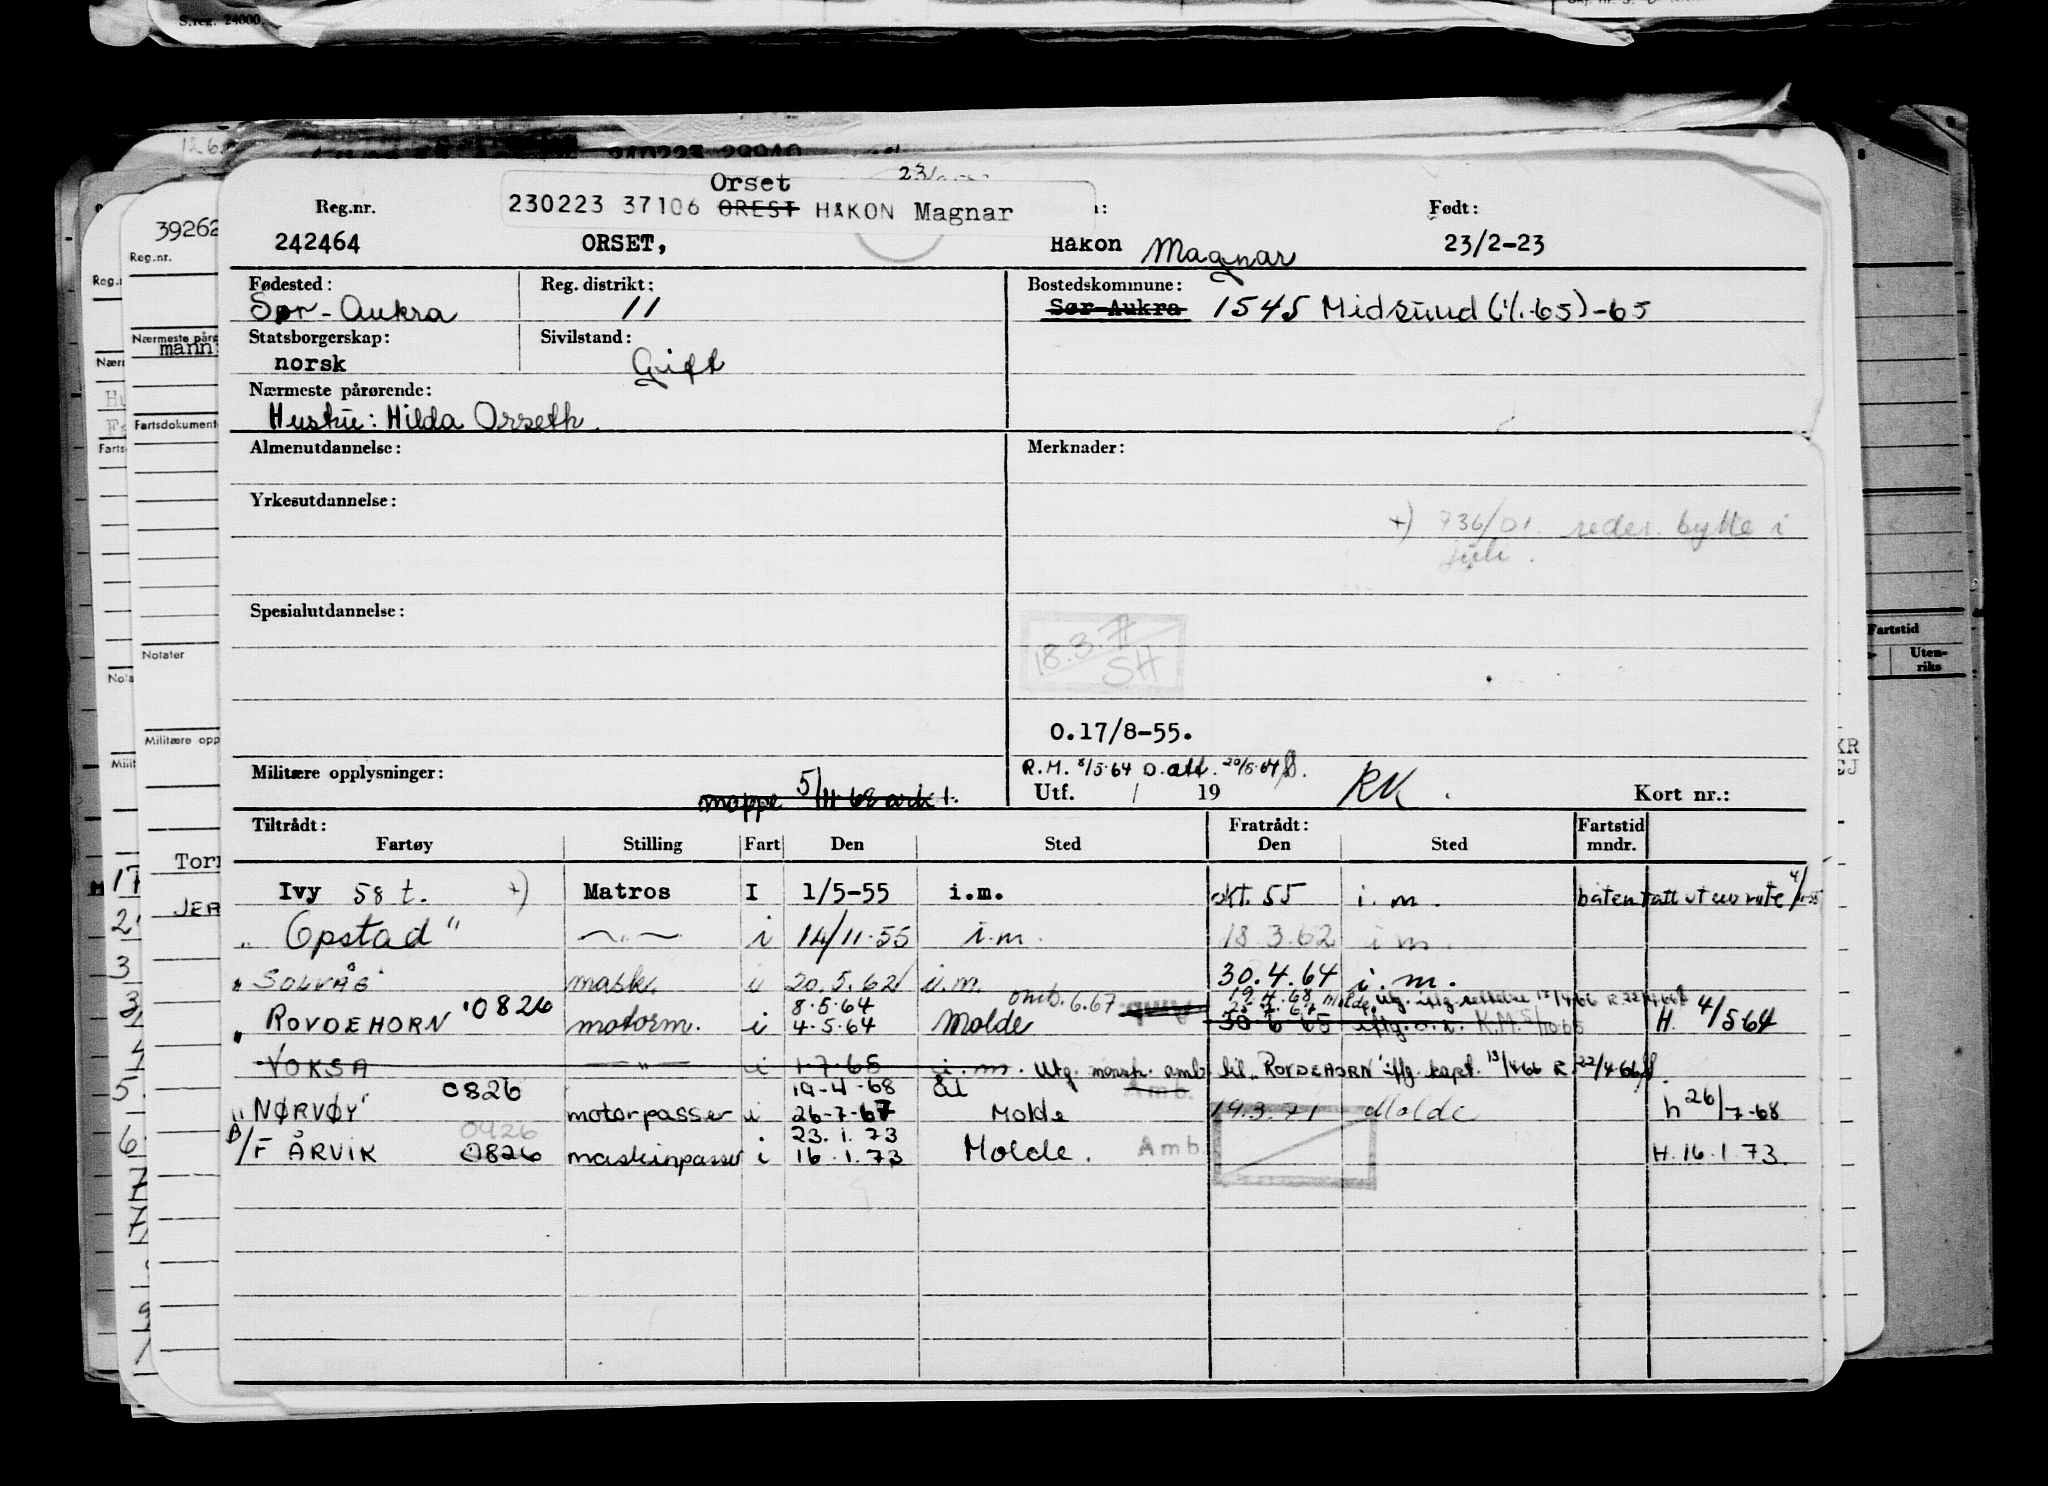 S.reg. 24000.
12.6.
Orset
230223 37106 OREST HÅKON Magnar
Reg.nr.
Født:
242464 ORSET, Håkon Magnar 23/2-23
Fødested: Reg. distrikt: Bostedskommune:
Sør-Aukra 11 Sør-Aukra 1545 Midsund (1/1-65)-65
Statsborgerskap: Sivilstand:
norsk Gift
Nærmeste pårørende:
Hustru: Hilda Orseth.
Almenutdannelse: Merknader:
Yrkesutdannelse:
+) 736/01. reder. bytte i
juli.
Spesialutdannelse:
18.3.71
SH
O.17/8-55.
Militære opplysninger: R.M. 8/5-64 O.att. 20/5-64
mappe 5/ 68 ark 1. Utf. / 19 RK. Kort nr.:
Tiltrådt: Fratrådt: Fartstid
Fartøy Stilling Fart Den Sted Den Sted mndr.
Ivy 58 t. +) Matros I 1/5-55 i.m. okt. 55 i.m. båten tatt ut av rute 4/
" Opstad" —"— i 14/11-55 i.m. 18.3.62 i.m.
" SOLVÅG" mask. i 20.5.62 i.m. 30.4.64 i.m.
" ROVDEHORN "0826 motorm. i 8.5.64
4-5.64 Molde omb. 6.67 19.4.68 Molde
30-6-65 H. 4/5 64
VOKSA —"— i 1-7-65 i.m. Utg. mønstr. omb til "ROVDEHORN" iflg. kapt. 13/4-66 R 22/4-66
" NØRVØY" 0826 motorpasser i 19-4-68
26-7-67 ål
Molde Amb. 19.3.71 Molde h 26/7-68
B/F ÅRVIK 0926
0826 maskinpasser i 23.1.73
16.1.73 Molde. Amb. H. 16.1.73.
39262
Reg.nr.
Nærmeste pårø
mann
Fartsdokument
Notater
Militære opp
Torr
JER
Fartstid
Uten-
riks